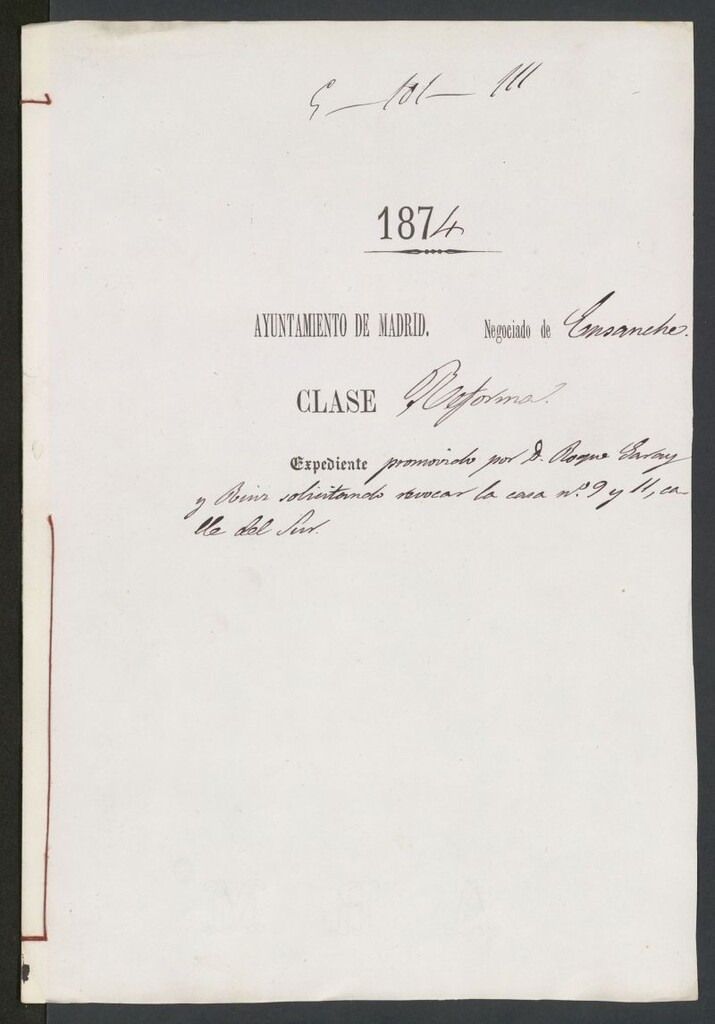 5 - 101 - 111
1874
AYUNTAMIENTO DE MADRID. Negociado de Ensanche.
CLASE Reforma.
Expediente promovido por D. Roque
y Ruiz solicitando revocar la casa n.º 9 y 11, ca-
lle del Sur.